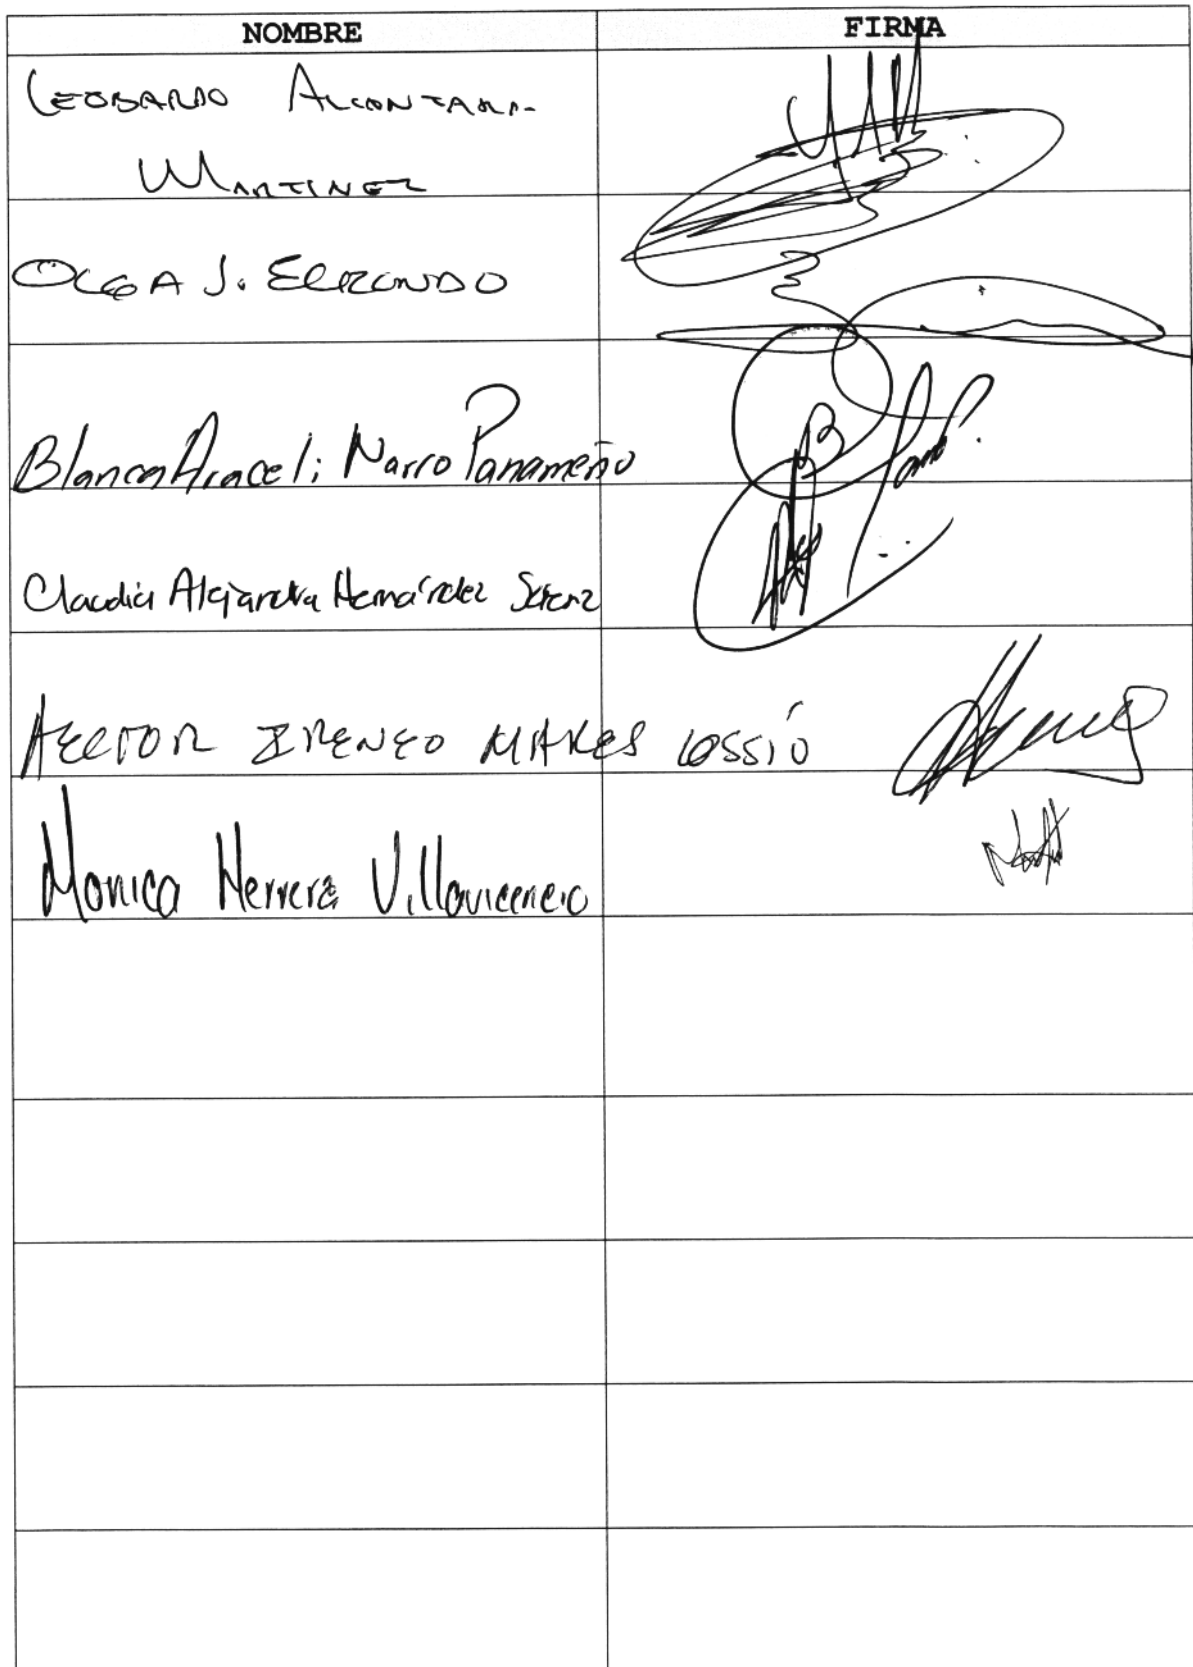 NOMBRE FIRMA
LEOBARDO ALCANTARA
MARTINEZ
OLGA J. ELIZONDO
Blanca Araceli Narro Panameño
Claudia Alejandra Hernández Sáenz
HECTOR IRENEO MARES COSSIÓ
Monica Herrera Villavicencio